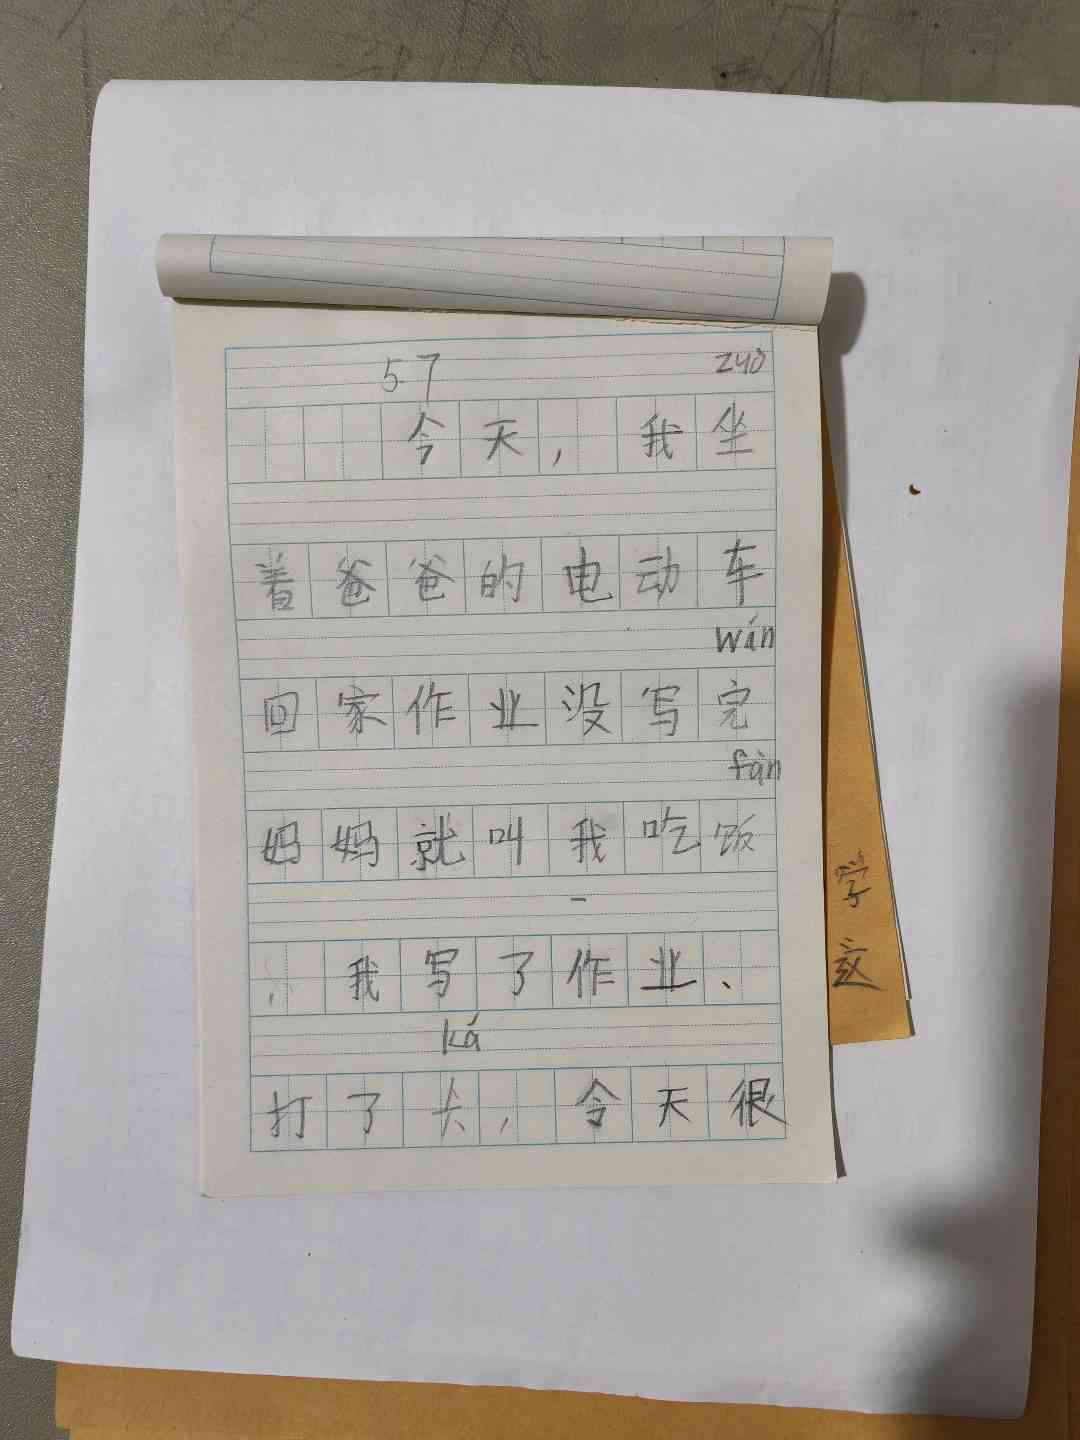 57 zuò
今天，我坐
着爸爸的电动车
wán
回家作业没写完
fàn
妈妈就叫我吃饭
，我写了作业、
kǎ
打了卡，今天很
学
这